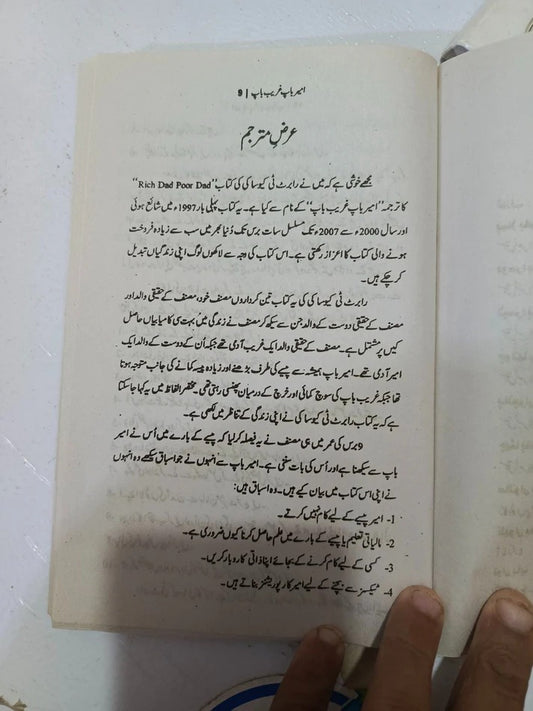 امیر باپ غریب باپ | 9
عرضِ مترجم
مجھے خوشی ہے کہ میں نے رابرٹ ٹی کیوساکی کی کتاب "Rich Dad Poor Dad"
کا ترجمہ "امیر باپ غریب باپ" کے نام سے کیا ہے۔ یہ کتاب پہلی بار 1997ء میں شائع ہوئی
اور سال 2000ء سے 2007ء تک مسلسل سات برس تک دُنیا بھر میں سب سے زیادہ فروخت
ہونے والی کتاب کا اعزاز رکھتی ہے۔ اس کتاب کی وجہ سے لاکھوں لوگ اپنی زندگیاں تبدیل
کر چکے ہیں۔
رابرٹ ٹی کیوساکی کی یہ کتاب تین کرداروں مصنف خود، مصنف کے حقیقی والد اور
مصنف کے حقیقی دوست کے والد جن سے سیکھ کر مصنف نے زندگی میں بہت سی کامیابیاں حاصل
کیں پر مشتمل ہے۔ مصنف کے حقیقی والد ایک غریب آدمی تھے جبکہ اُن کے دوست کے والد ایک
امیر آدمی تھے۔ امیر باپ ہمیشہ سے پیسے کی طرف بڑھنے اور زیادہ پیسہ کمانے کی جانب متوجہ ہوتا
تھا جبکہ غریب باپ کی سوچ کمائی اور خرچ کے درمیان پھنسی رہتی تھی۔ مختصر الفاظ میں یہ کہا جا سکتا
ہے کہ یہ کتاب رابرٹ ٹی کیوساکی نے اپنی زندگی کے تناظر میں لکھی ہے۔
9 برس کی عمر میں ہی مصنف نے یہ فیصلہ کر لیا کہ پیسے کے بارے میں اُس نے امیر
باپ سے سیکھنا ہے اور اُس کی بات سننی ہے۔ امیر باپ سے اُنہوں نے جو اسباق سیکھے وہ اُنہوں
نے اپنی اس کتاب میں بیان کیے ہیں۔ وہ اسباق ہیں:
1- امیر پیسے کے لیے کام نہیں کرتے۔
2- مالیاتی تعلیم یا پیسے کے بارے میں علم حاصل کرنا کیوں ضروری ہے۔
3- کسی کے لیے کام کرنے کے بجائے اپنا ذاتی کاروبار کریں۔
4- ٹیکسز سے بچنے کے لیے امیر کارپوریشنز بناتے ہیں۔